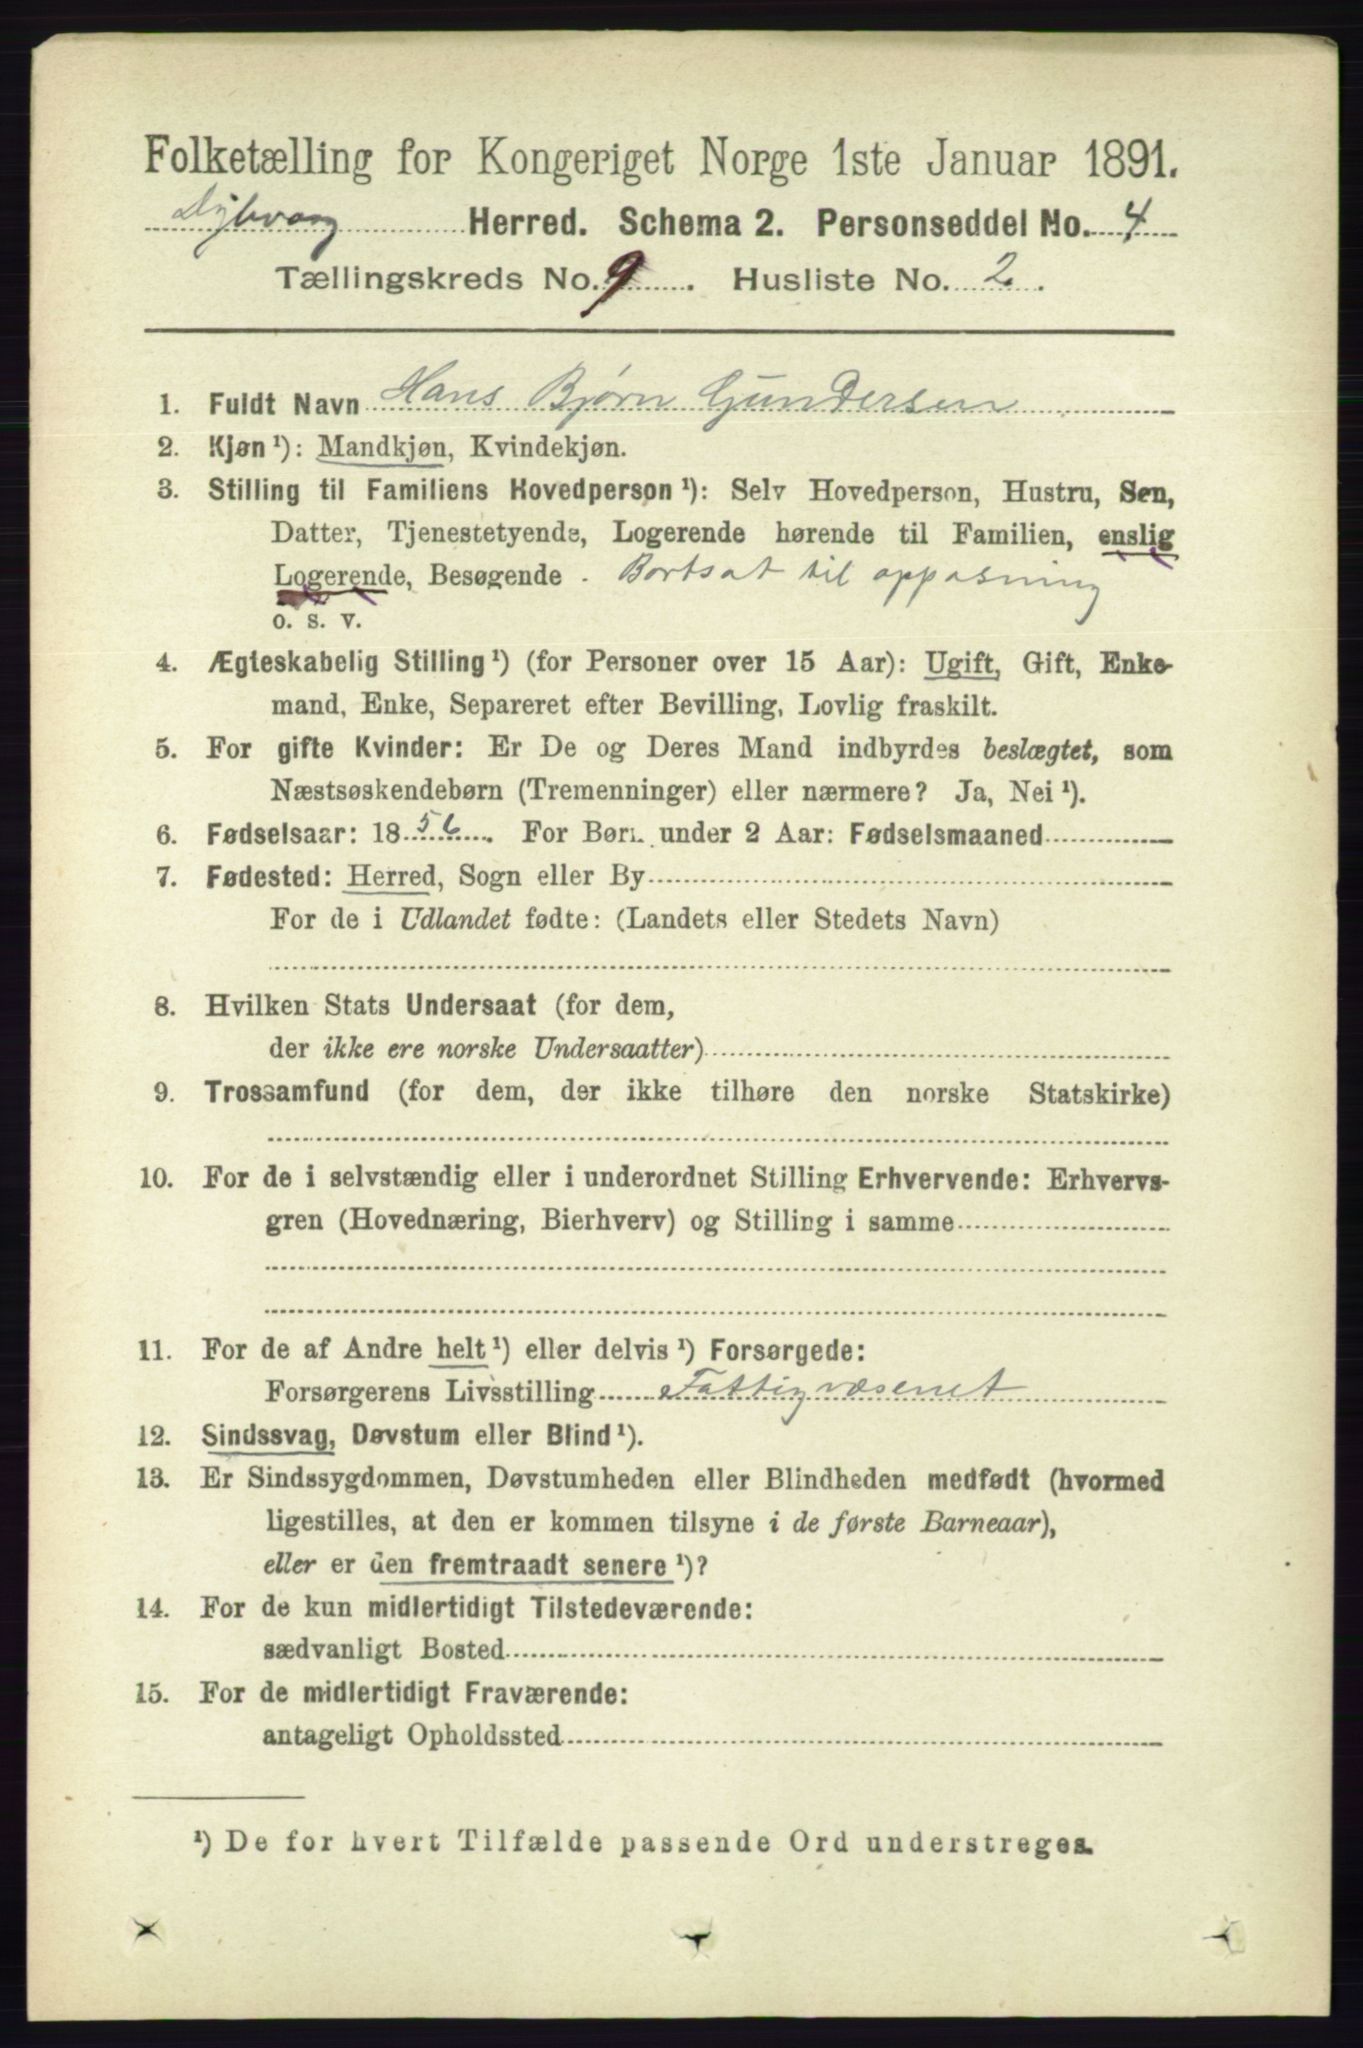 Folketælling for Kongeriget Norge 1ste Januar 1891.
Dybvaag Herred. Schema 2. Personseddel No. 4
Tællingskreds No. 9. Husliste No. 2.
1. Fuldt Navn Hans Bjørn Gundersen
2. Kjøn¹): Mandkjøn, Kvindekjøn.
3. Stilling til Familiens Hovedperson¹): Selv Hovedperson, Hustru, Søn,
Datter, Tjenestetyende, Logerende hørende til Familien, enslig
Logerende, Besøgende . Bortsat til oppasning
o. s. v.
4. Ægteskabelig Stilling¹) (for Personer over 15 Aar): Ugift, Gift, Enke-
mand, Enke, Separeret efter Bevilling, Lovlig fraskilt.
5. For gifte Kvinder: Er De og Deres Mand indbyrdes beslægtet, som
Næstsøskendebørn (Tremenninger) eller nærmere? Ja, Nei¹).
6. Fødselsaar: 1856. For Børn under 2 Aar: Fødselsmaaned
7. Fødested: Herred, Sogn eller By
For de i Udlandet fødte: (Landets eller Stedets Navn)
8. Hvilken Stats Undersaat (for dem,
der ikke ere norske Undersaatter)
9. Trossamfund (for dem, der ikke tilhøre den norske Statskirke)
10. For de i selvstændig eller i underordnet Stilling Erhvervende: Erhvervs-
gren (Hovednæring, Bierhverv) og Stilling i samme
11. For de af Andre helt¹) eller delvis¹) Forsørgede:
Forsørgerens Livsstilling Fattigvæsenet
12. Sindssvag, Døvstum eller Blind¹).
13. Er Sindssygdommen, Døvstumheden eller Blindheden medfødt (hvormed
ligestilles, at den er kommen tilsyne i de første Barneaar),
eller er den fremtraadt senere¹)?
14. For de kun midlertidigt Tilstedeværende:
sædvanligt Bosted
15. For de midlertidigt Fraværende:
antageligt Opholdssted
¹) De for hvert Tilfælde passende Ord understreges.